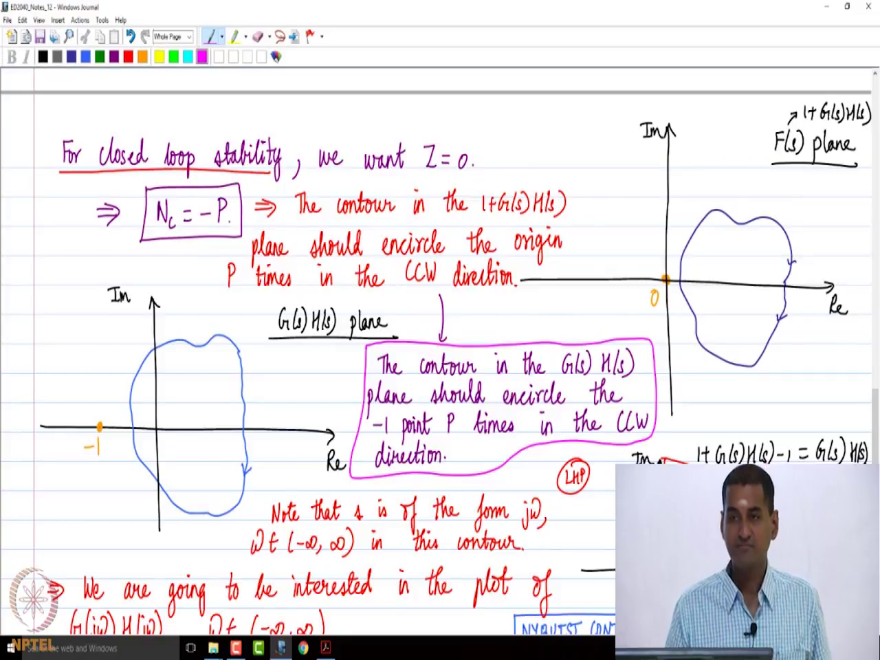 ED2040_Notes_12 - Windows Journal
File Edit View Insert Actions Tools Help
Whole Page
B I
For closed loop stability, we want Z=0.
⇒ Nc = -P. ⇒ The contour in the 1+G(s)H(s)
plane should encircle the origin
P times in the CCW direction.
Im
1+G(s)H(s)
F(s) plane
0
Re
Im
G(s)H(s) plane
-1
Re
The contour in the G(s)H(s)
plane should encircle the
-1 point P times in the CCW
direction.
LHP
Im
1+G(s)H(s)-1 = G(s)H(s)
Note that s is of the form jω,
ω ∈ (-∞, ∞) in this contour.
⇒ We are going to be interested in the plot of
G(jω)H(jω) ω ∈ (-∞, ∞)
NYQUIST
NPTEL
the web and Windows